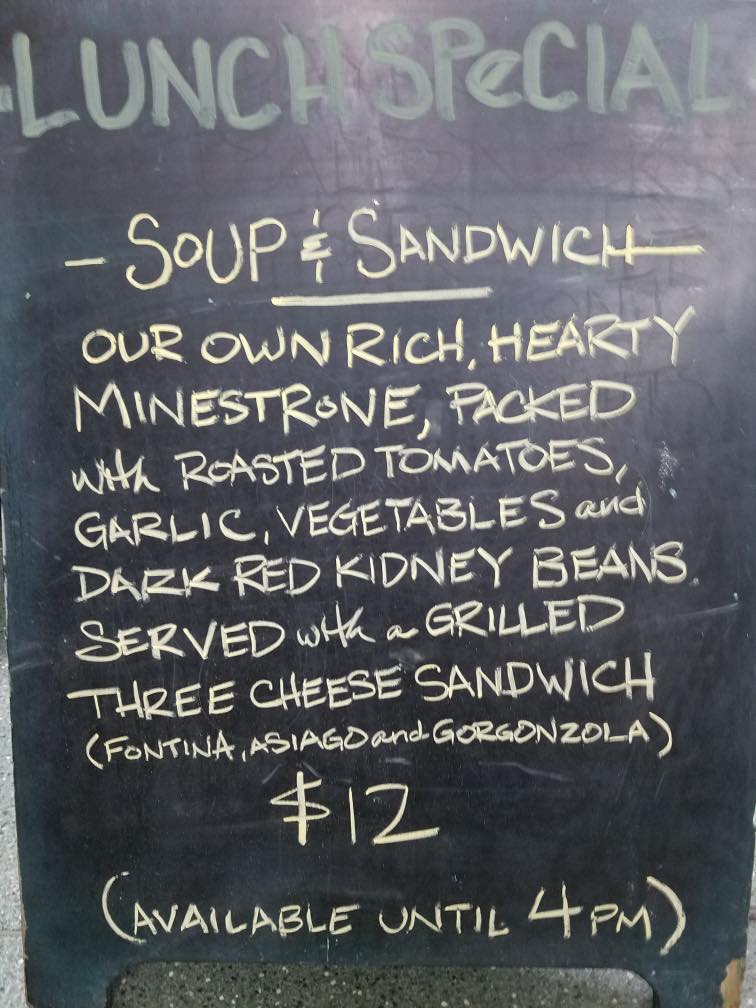 LUNCH SPeCIAL
- SOUP & SANDWICH -
OUR OWN RICH, HEARTY
MINESTRONE, PACKED
with ROASTED TOMATOES,
GARLIC, VEGETABLES and
DARK RED KIDNEY BEANS.
SERVED with a GRILLED
THREE CHEESE SANDWICH
(FONTINA, ASIAGO and GORGONZOLA)
$12
(AVAILABLE UNTIL 4PM)